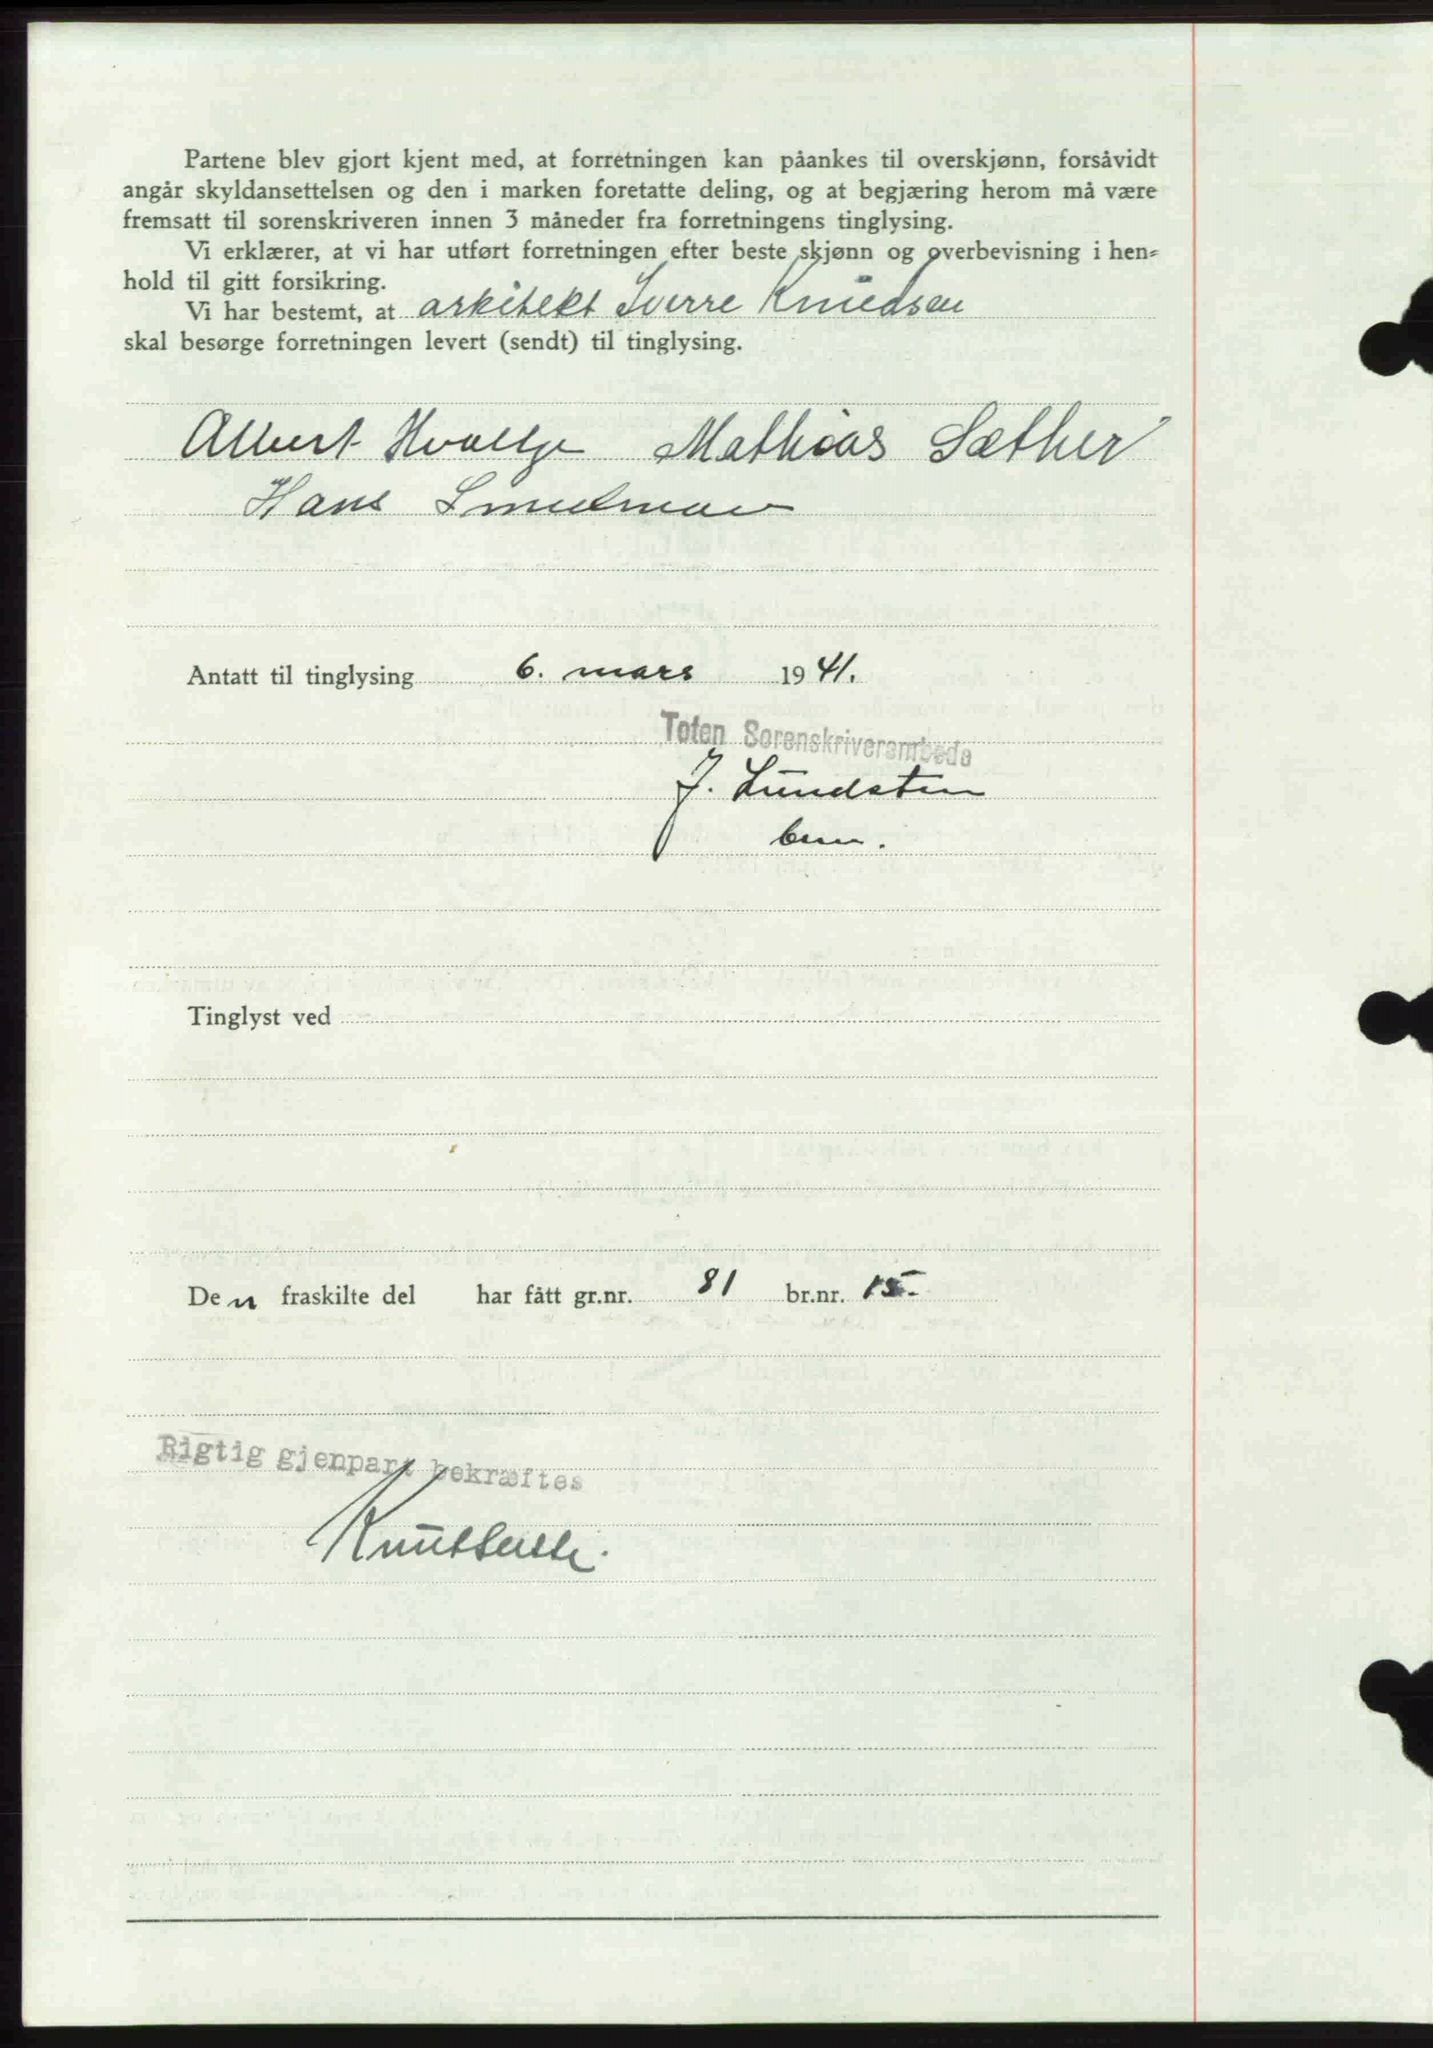 Partene blev gjort kjent med, at forretningen kan påankes til overskjønn, forsåvidt
angår skyldansettelsen og den i marken foretatte deling, og at begjæring herom må være
fremsatt til sorenskriveren innen 3 måneder fra forretningens tinglysing.
Vi erklærer, at vi har utført forretningen efter beste skjønn og overbevisning i hen-
hold til gitt forsikring.
Vi har bestemt, at arkitekt Sverre Knudsen
skal besørge forretningen levert (sendt) til tinglysing.
Albert Mathias Sæther
Hans
Antatt til tinglysing 6. mars 1941.
Toten Sorenskriverembede
J. Lundsten
Tinglyst ved
Den fraskilte del har fått gr.nr. 81 br.nr. 15.
Rigtig gjenpart bekræftes